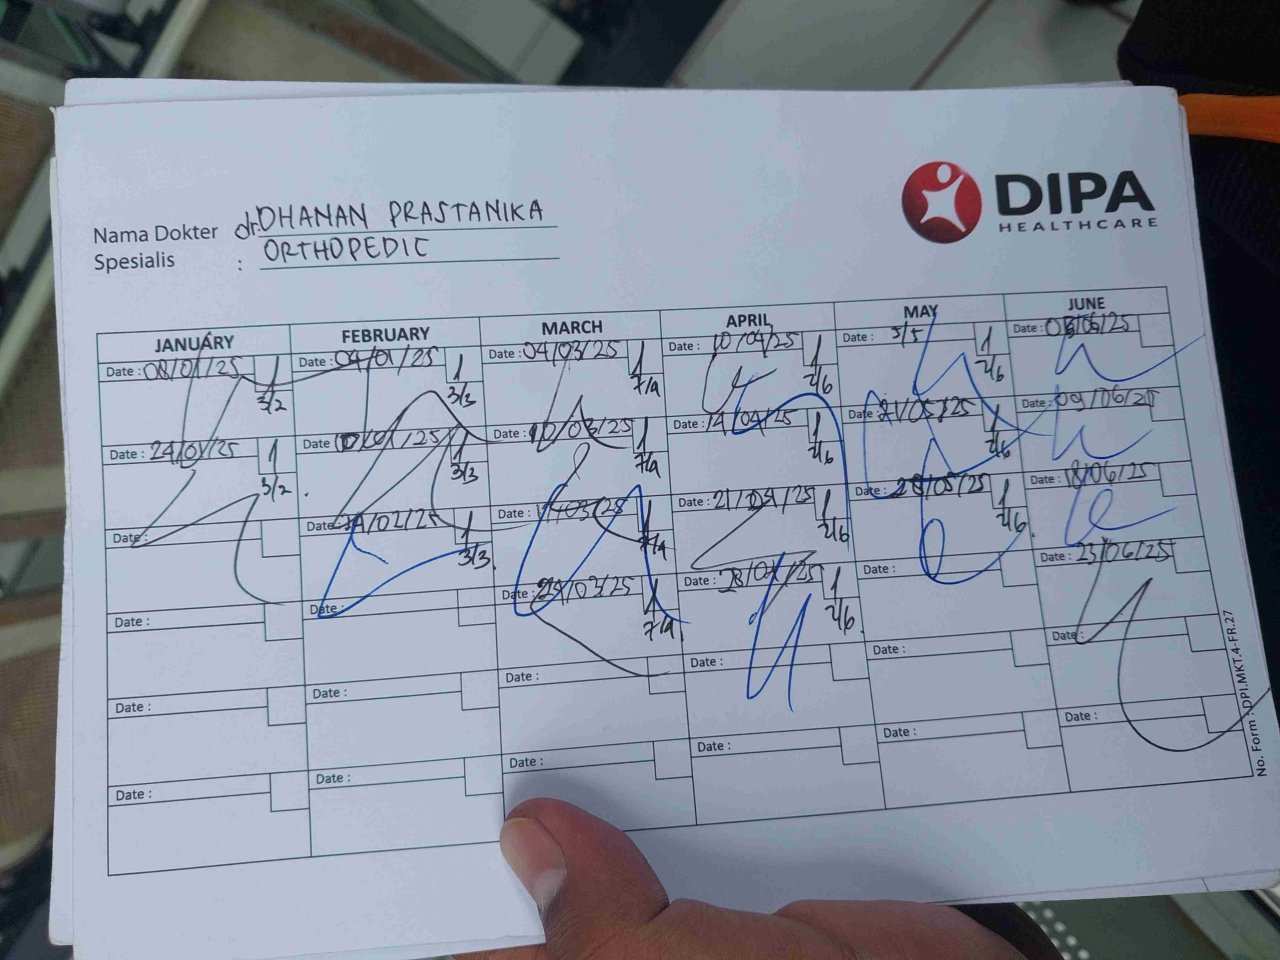 DIPA
HEALTHCARE
Nama Dokter dr. DHANAN PRASTANIKA
Spesialis : ORTHOPEDIC
JANUARY FEBRUARY MARCH APRIL MAY JUNE
Date : 08/01/25 1 3/2 Date : 04/01/25 1 3/3 Date : 04/03/25 1 7/4 Date : 10/04/25 1 2/6 Date : 5/5 1 2/6 Date : 03/06/25
Date : 24/01/25 1 3/2 Date : 1 3/3 Date : 10/03/25 1 7/4 Date : 14/04/25 1 2/6 Date : 1 2/6 Date : 09/06/25
Date : Date : 1 3/3 Date : 1 7/4 Date : 21/04/25 1 2/6 Date : 28/05/25 1 2/6 Date : 18/06/25
Date : Date : Date : 1 7/4 Date : 28/04/25 1 2/6 Date : Date : 23/06/25
Date : Date : Date : Date : Date : Date :
Date : Date : Date : Date : Date : Date :
No. Form : DPI.MKT.4-FR.27